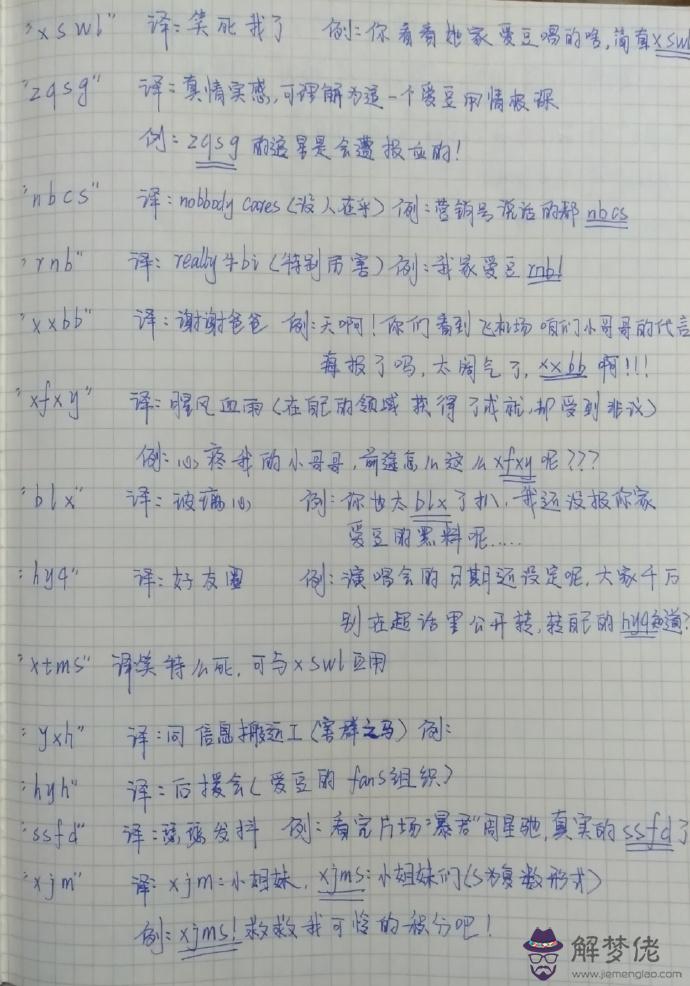 "xswl" 译：笑死我了 例：你看看她家爱豆唱的啥，简直xswl
"zqsg" 译：真情实感，可理解为追一个爱豆用情极深
例：zqsg的追星是会遭报应的！
"nbcs" 译：nobbody cares（没人在乎）例：营销号说话的都nbcs
"rnb" 译：really牛bi（特别厉害）例：我家爱豆rnb！
"xxbb" 译：谢谢爸爸 例：天啊！你们看到飞机场咱们小哥哥的代言
海报了吗，太阔气了，xxbb啊！！！
"xfxy" 译：腥风血雨（在自己的领域获得了成就，却受到非议）
例：心疼我的小哥哥，前途怎么这么xfxy呢？？？
"blx" 译：玻璃心 例：你也太blx了扒，我还没报你家
爱豆的黑料呢……
"hyq" 译：好友圈 例：演唱会的日期还没定呢，大家千万
别在超话里公开转，转自己的hyq知道？
"xtms" 译笑特么死，可与xswl互用
"yxh" 译：同信息搬运工（害群之马）例：
"hyh" 译：后援会（爱豆的fans组织）
"ssfd" 译：瑟瑟发抖 例：看完片场"暴君"周星驰，真实的ssfd了
"xjm" 译：xjm：小姐妹，xjms：小姐妹们（s为复数形式）
例：xjms！救救我可怜的积分吧！
解梦佬
www.jiemenglao.com